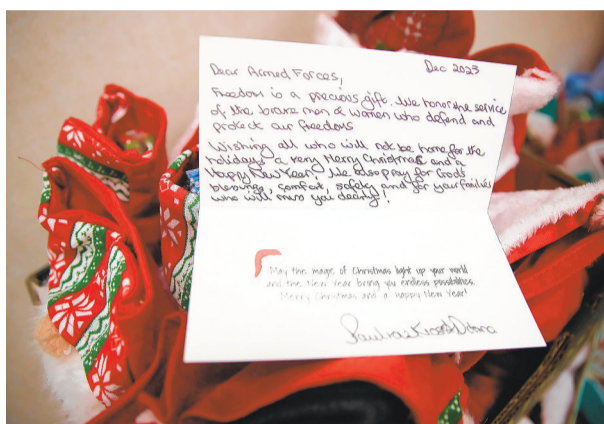 Dec 2023
Dear Armed Forces,
Freedom is a precious gift. We honor the service
of the brave men & women who defend and
protect our freedoms
Wishing all who will not be home for the
holidays a very Merry Christmas and a
Happy New Year! We also pray for God's
blessings, comfort, safety and for your families
who will miss you dearly!
May the magic of Christmas light up your world
and the New Year bring you endless possibilities.
Merry Christmas and a Happy New Year!